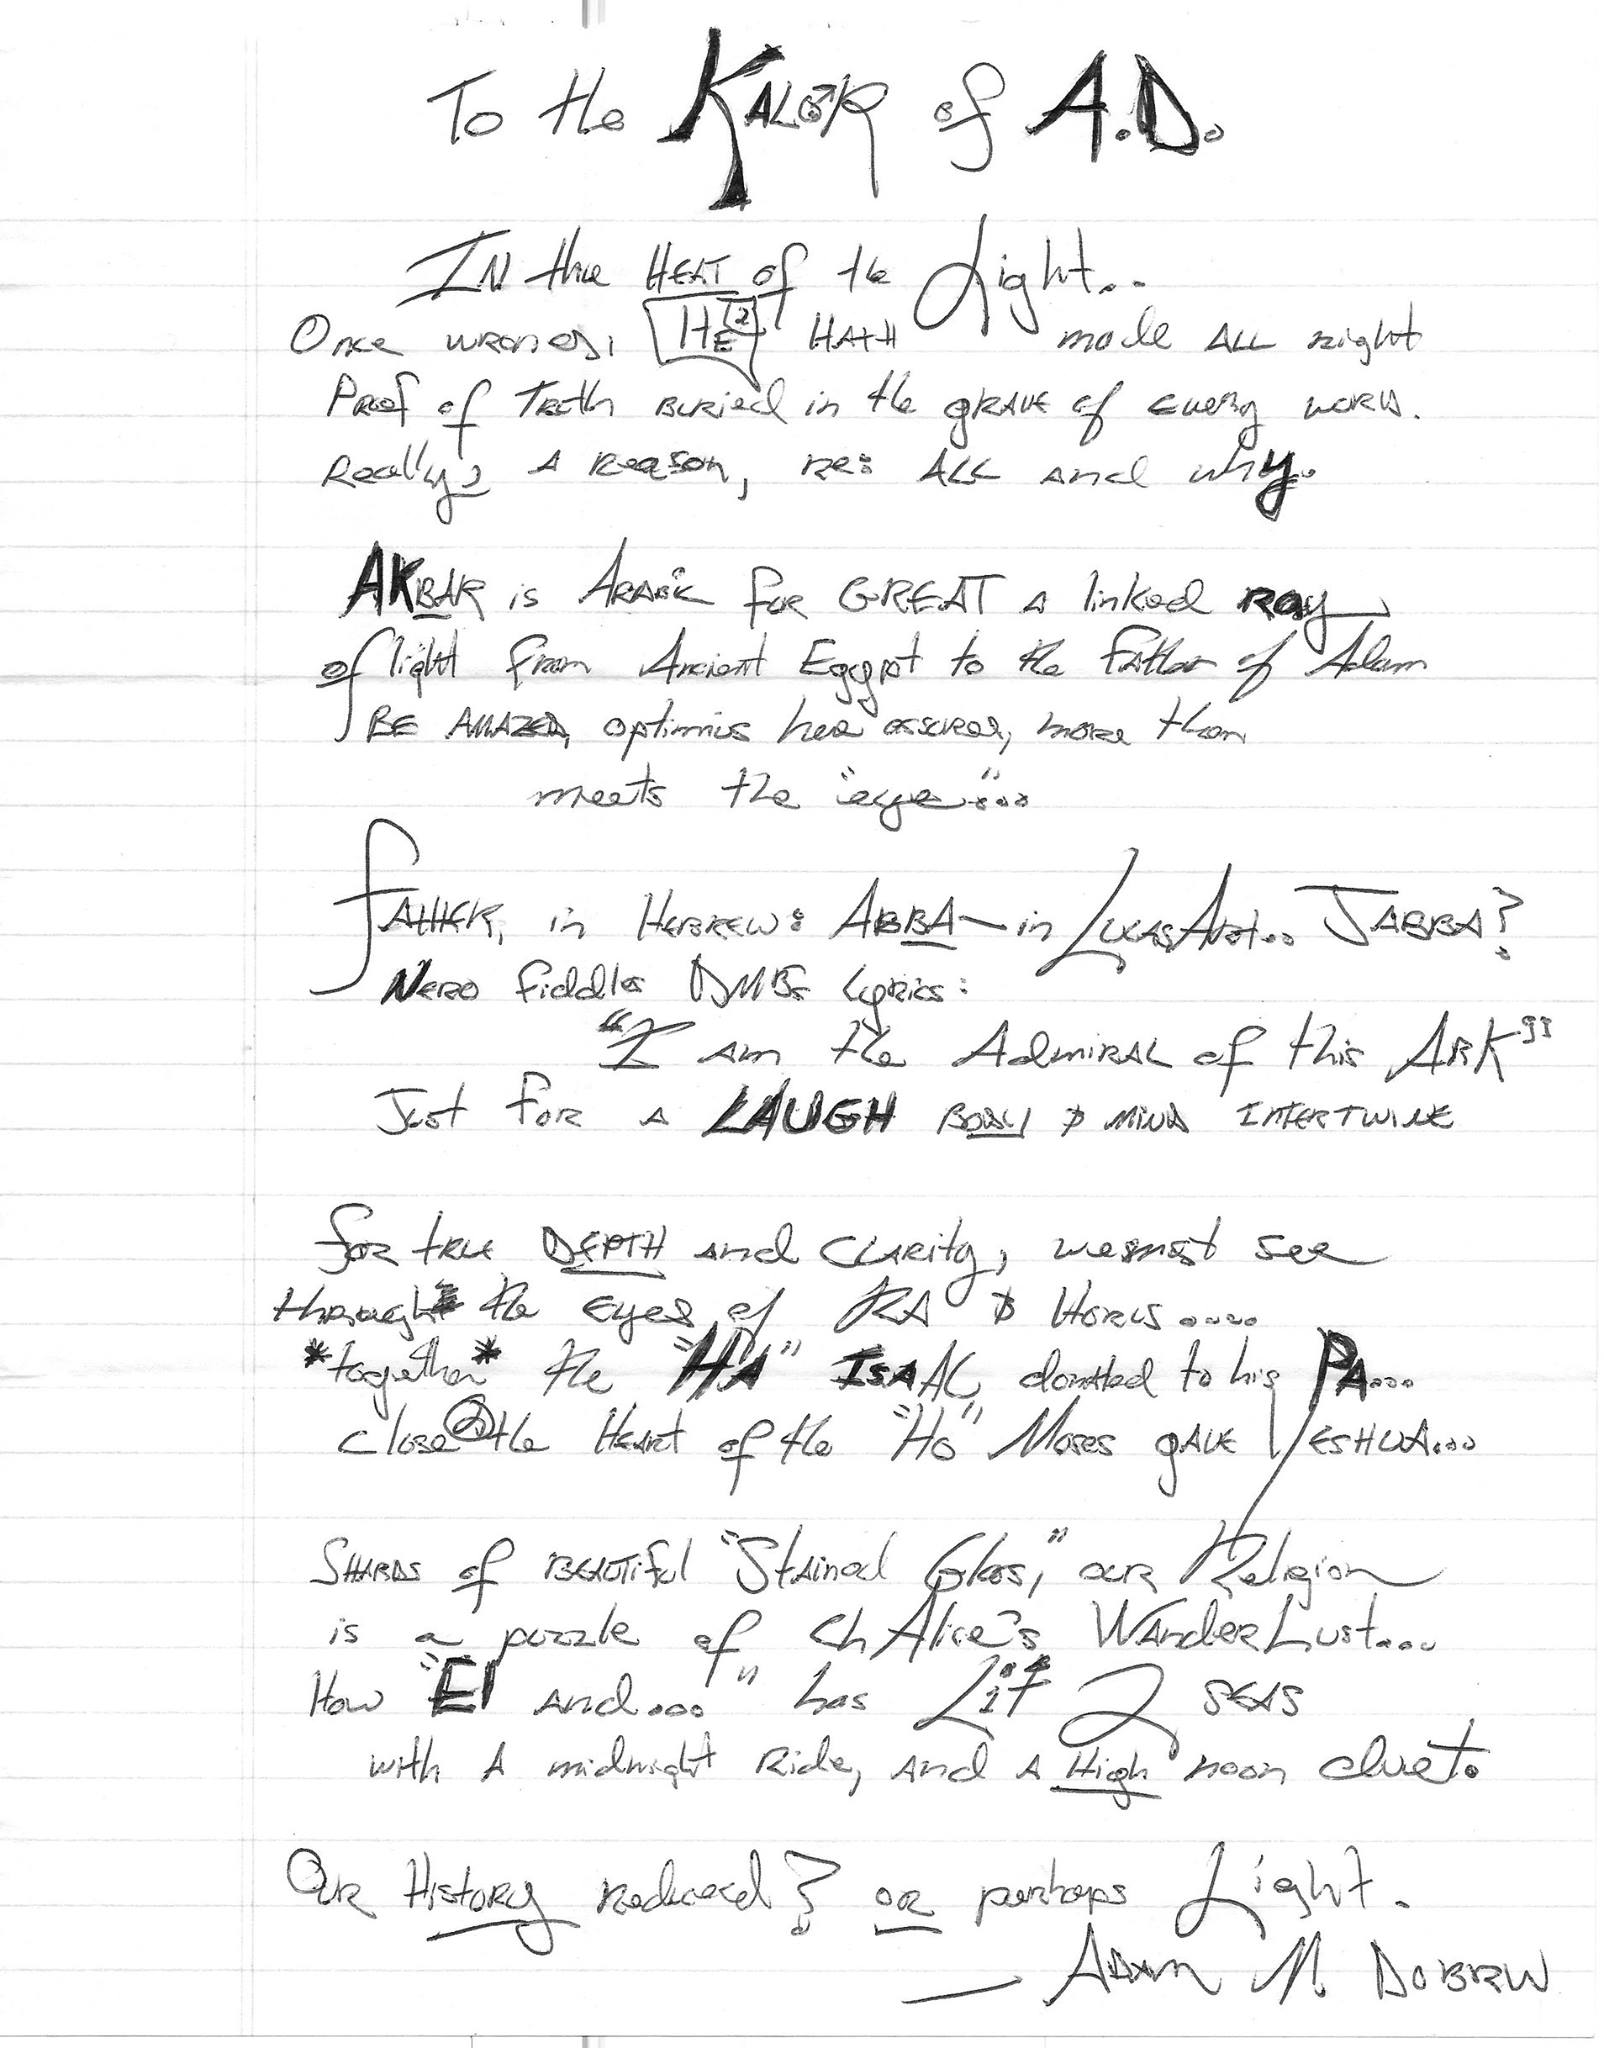 To the KALOR of A.D.
IN the HEAT of the Light..
Once WRONGED, HE[2] HATH made ALL right
Proof of Truth BURIED in the GRAVE of every WORD.
Really, A Reason, RE: ALL and why.
AKBAR is Arabic for GREAT a linked RAy
of light from Ancient Egypt to the Father of Adam
BE AMAZED, optimus here, more than
meets the "eye"...
FATHER, in HEBREW: ABBA — in LucasArt... JABBA?
Nero fiddles DMBs lyrics:
"I am the Admiral of this ARK"
Just for a LAUGH BODY & MIND INTERTWINE
for true DEPTH and CLARITY, we must see
through the Eyes of RA & HORUS....
*together* the "HA" ISAAC donated to his PA...
close @ the HEART of the "Ho" Moses GAVE YESHUA...
SHARDS of BEAUTIFUL "Stained Glass," our Religion
is a puzzle of chAlice's WanderLust...
How "El and..." has Lit 2 SEAS
with A midnight Ride, and A High noon duet.
OUR HISTORY reduced? or perhaps Light.
— ADAM M. DOBRIN